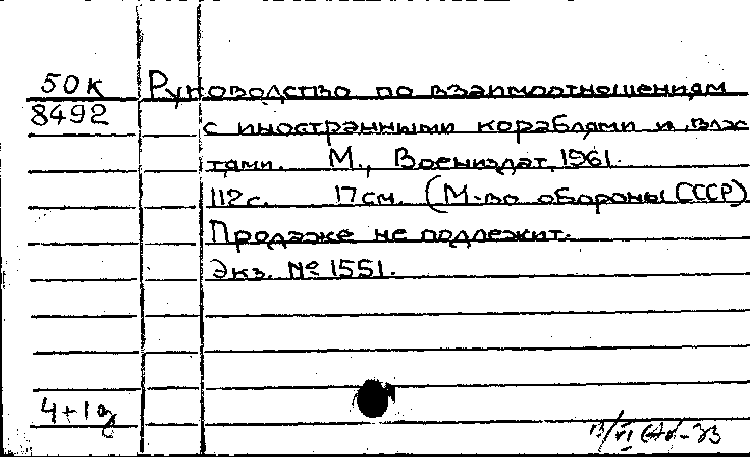 50К Руководство по взаимоотношениям
8492 с иностранными кораблями и влас
тями. М., Воениздат, 1961.
112 с. 17 см. (М-во обороны СССР)
Продаже не подлежит.
Экз. № 1551.
4+1